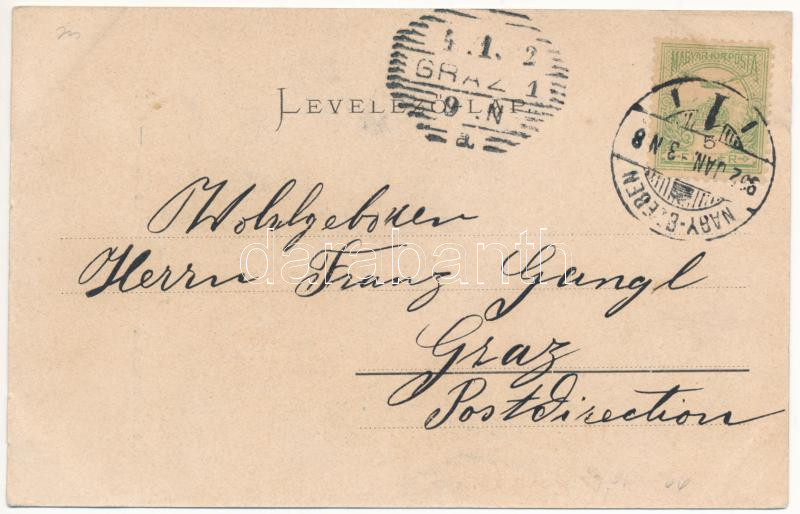 4.1.2
GRAZ 1
9.N
a
MAGYAR KIR. POSTA
LEVELEZŐ-LAP
1
5
902 JAN. 3 N 8
NAGY-SZEBEN
Wohlgeboren
Herrn Franz Gangl
darabanth
Graz
Postdirection